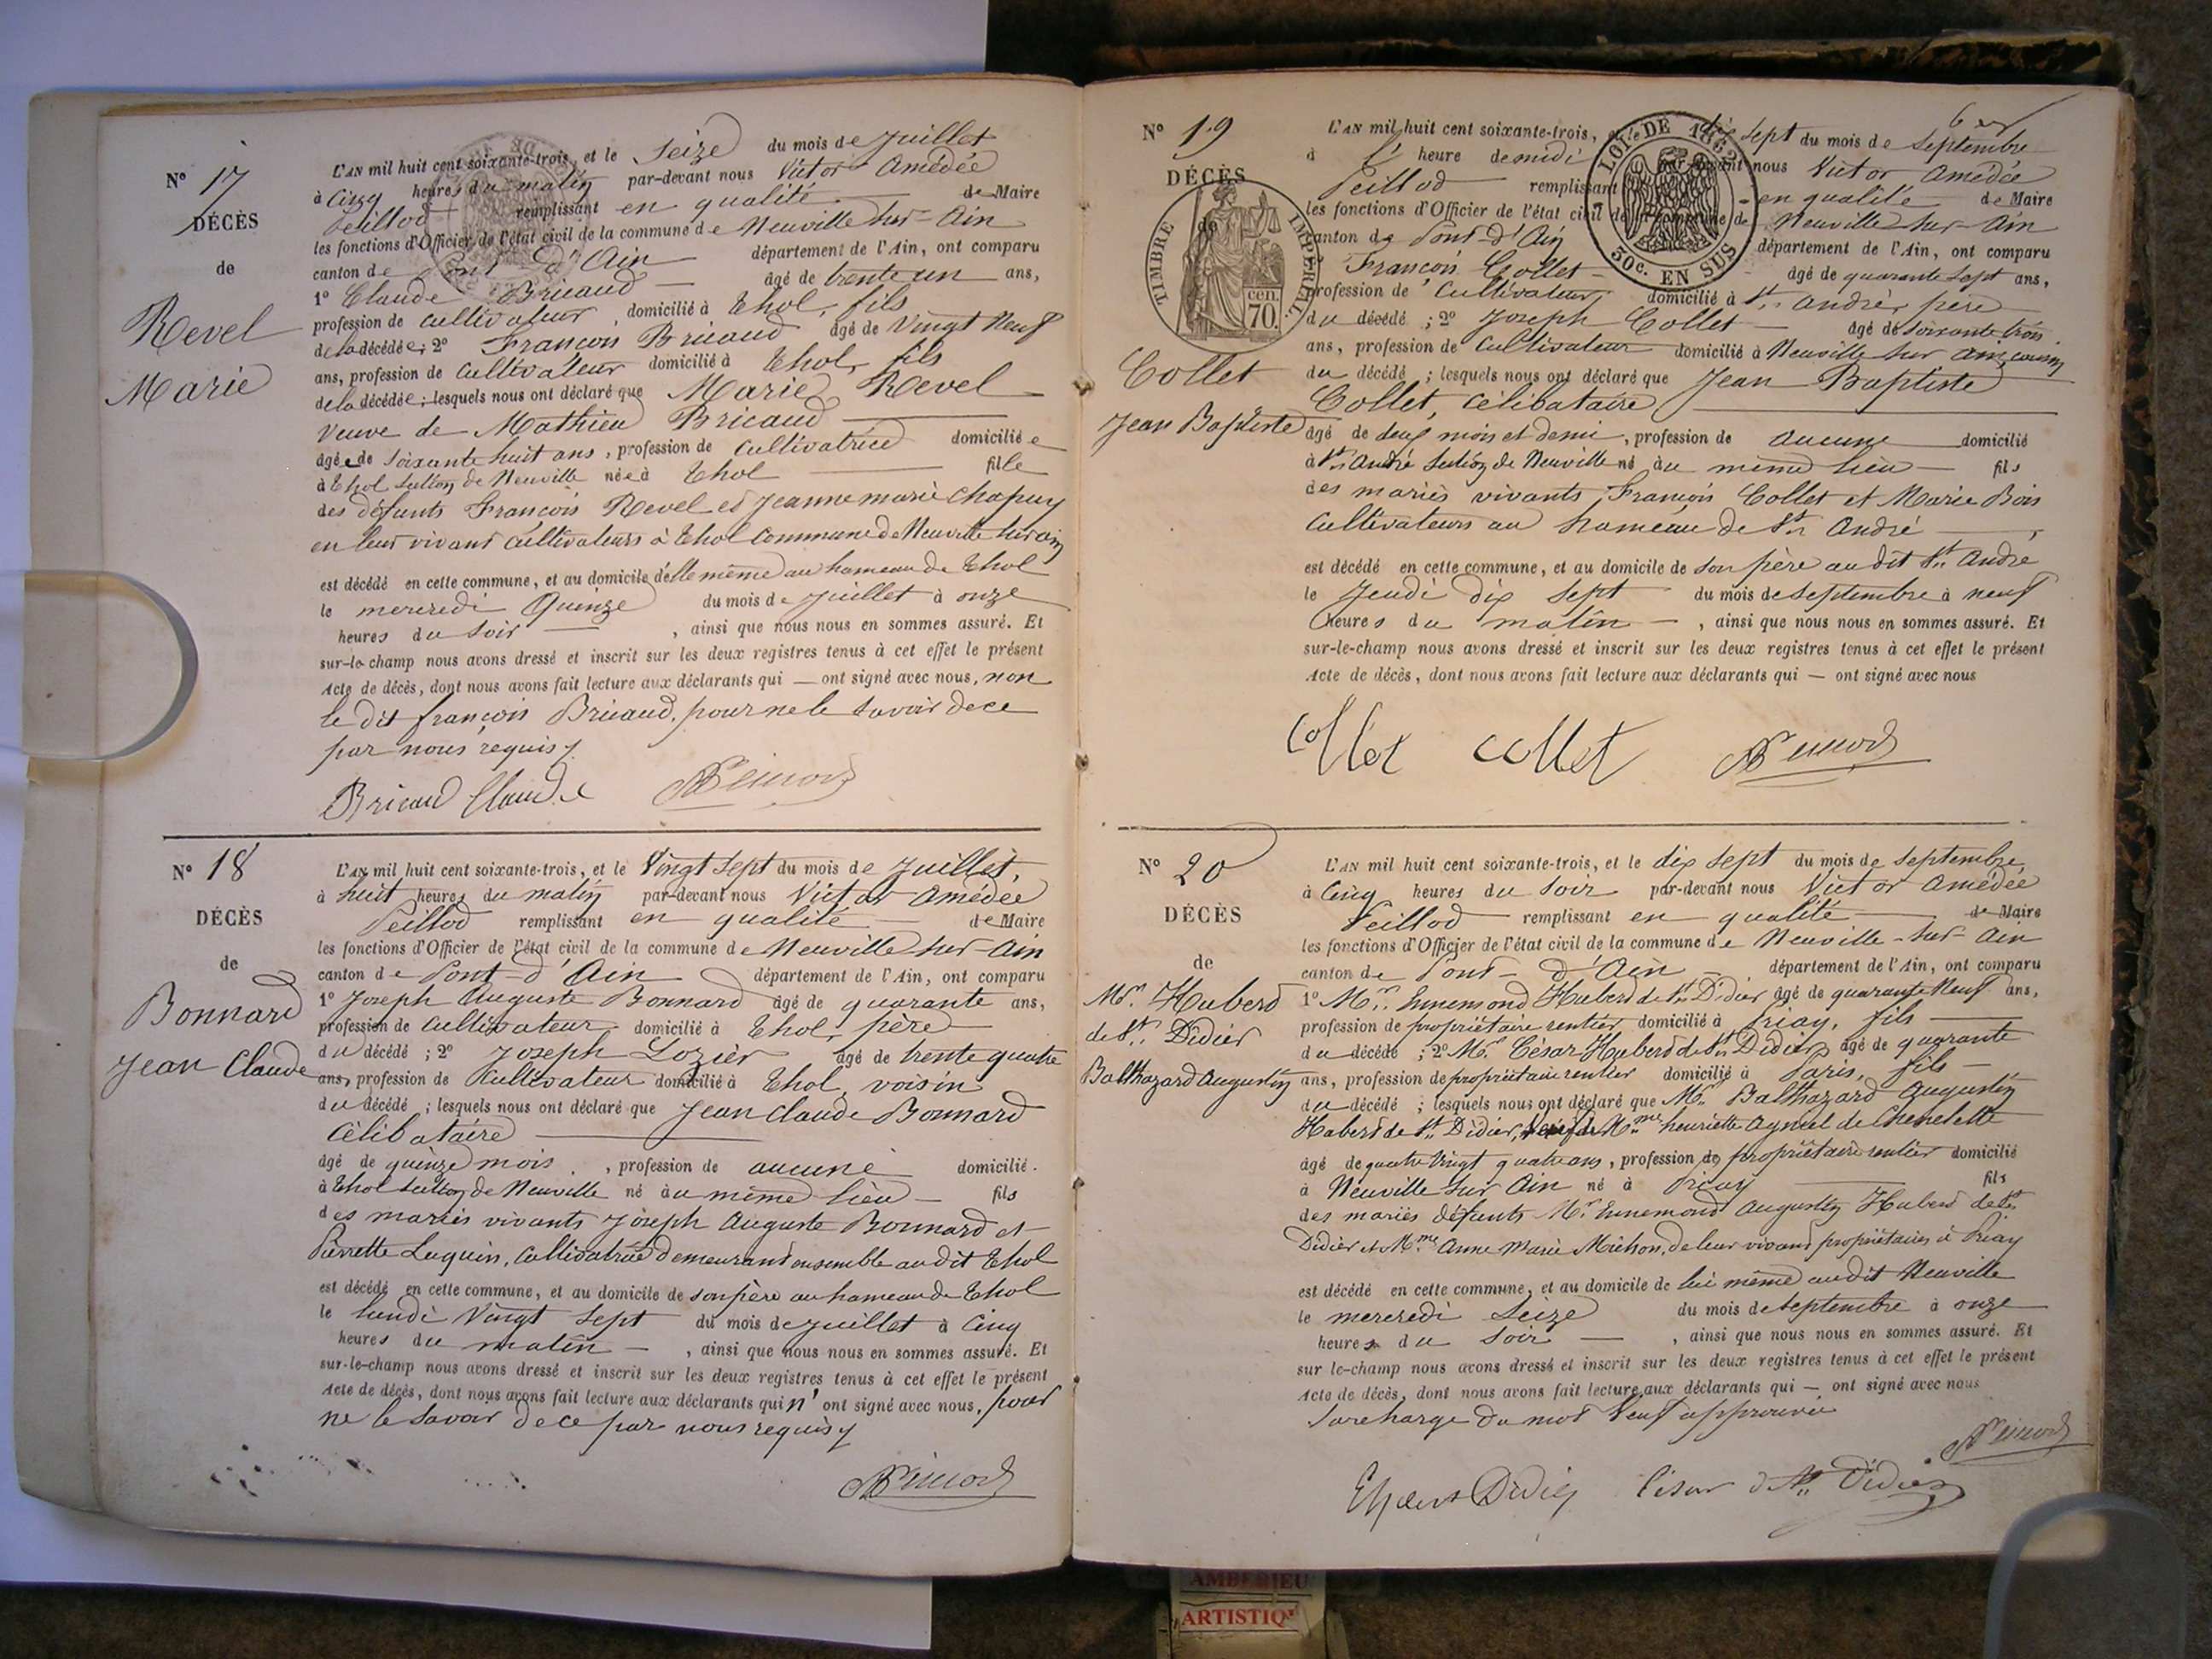 N° 17
DÉCÈS
de
Revel
Marie
L'AN mil huit cent soixante-trois, et le Seize du mois de Juillet
à Cinq heures du matin par-devant nous Victor Amédée
Peillod remplissant en qualité de Maire
les fonctions d'Officier de l'état civil de la commune de Neuville sur-Ain
canton de Pont d'Ain département de l'Ain, ont comparu
1° Claude Bricaud âgé de trente un ans,
profession de cultivateur domicilié à Thol, fils
de la décédée; 2° François Bricaud âgé de Vingt Neuf
ans, profession de cultivateur domicilié à Thol, fils
de la décédée; lesquels nous ont déclaré que Marie Revel
Veuve de Mathieu Bricaud
âgée de soixante huit ans, profession de cultivatrice domiciliée
à Thol Section de Neuville née à Thol fille
des défunts François Revel et Jeanne marie Chapuy
en leur vivant cultivateurs à Thol commune de Neuville sur ain
est décédé en cette commune, et au domicile d'elle même au hameau de Thol
le mercredi Quinze du mois de Juillet à onze
heures du soir, ainsi que nous nous en sommes assuré. Et
sur-le-champ nous avons dressé et inscrit sur les deux registres tenus à cet effet le présent
Acte de décès, dont nous avons fait lecture aux déclarants qui — ont signé avec nous, non
le dit françois Bricaud, pour ne le savoir de ce
par nous requis
Bricaud Claude
N° 18
DÉCÈS
de
Bonnard
Jean Claude
L'AN mil huit cent soixante-trois, et le Vingt sept du mois de Juillet,
à huit heures du matin par-devant nous Victor Amédée
Peillod remplissant en qualité de Maire
les fonctions d'Officier de l'état civil de la commune de Neuville sur-Ain
canton de Pont-d'Ain département de l'Ain, ont comparu
1° Joseph Auguste Bonnard âgé de quarante ans,
profession de cultivateur domicilié à Thol, père
du décédé; 2° Joseph Lozier âgé de trente quatre
ans, profession de Cultivateur domicilié à Thol, voisin
du décédé; lesquels nous ont déclaré que Jean Claude Bonnard
Célibataire
âgé de quinze mois, profession de aucune domicilié
à Thol section de Neuville né au même lieu fils
des mariés vivants Joseph Auguste Bonnard et
Pierrette Luquin, Cultivatrice demeurant ensemble audit Thol
est décédé en cette commune, et au domicile de son père au hameau de Thol
le lundi Vingt sept du mois de juillet à Cinq
heures du matin —, ainsi que nous nous en sommes assuré. Et
sur-le-champ nous avons dressé et inscrit sur les deux registres tenus à cet effet le présent
Acte de décès, dont nous avons fait lecture aux déclarants qui n'ont signé avec nous, pour
ne le savoir de ce par nous requis
N° 19
DÉCÈS
de
TIMBRE IMPÉRIAL
cen.
70.
Collet
Jean Baptiste
LOI DE 1862
30c. EN SUS
L'AN mil huit cent soixante-trois, et le dix sept du mois de Septembre
à l' heure de midi par-devant nous Victor Amédée
Peillod remplissant en qualité de Maire
les fonctions d'Officier de l'état civil de la commune de Neuville sur-Ain
canton de Pont-d'Ain département de l'Ain, ont comparu
François Collet âgé de quarante sept ans,
profession de Cultivateur domicilié à St. andré, père
du décédé; 2° Joseph Collet âgé de soixante trois
ans, profession de cultivateur domicilié à Neuville sur ain, cousin
du décédé; lesquels nous ont déclaré que Jean Baptiste
Collet, célibataire
âgé de deux mois et demi, profession de aucune domicilié
à St. André section de Neuville né au même lieu fils
des mariés vivants François Collet et Marie Bois
cultivateurs au hameau de St. André
est décédé en cette commune, et au domicile de son père au dit St. André
le Jeudi dix sept du mois de septembre à neuf
heures du matin —, ainsi que nous nous en sommes assuré. Et
sur-le-champ nous avons dressé et inscrit sur les deux registres tenus à cet effet le présent
Acte de décès, dont nous avons fait lecture aux déclarants qui — ont signé avec nous
Collet collet
N° 20
DÉCÈS
de
Mr. Huberd
de St. Didier
Balthazard Augustin
L'AN mil huit cent soixante-trois, et le dix sept du mois de septembre
à Cinq heures du soir par-devant nous Victor Amédée
Peillod remplissant en qualité de Maire
les fonctions d'Officier de l'état civil de la commune de Neuville-sur-Ain
canton de Pont-d'Ain département de l'Ain, ont comparu
1° Mr. Ennemond Huberd de St. Didier âgé de quarante Neuf ans,
profession de propriétaire rentier domicilié à Priay, fils
du décédé; 2° Mr. César Huberd de St. Didier âgé de quarante
ans, profession de propriétaire rentier domicilié à Paris, fils
du décédé; lesquels nous ont déclaré que Mr. Balthazard Augustin
Huberd de St. Didier, Veuf de Mme henriette Ayniel de Chenelette
âgé de quatre vingt quatre ans, profession de propriétaire rentier domicilié
à Neuville sur Ain né à Priay fils
des mariés défunts Mr. Ennemond Augustin Huberd de St.
Didier et Mme Anne Marie Michon, de leur vivant propriétaires à Priay
est décédé en cette commune, et au domicile de lui même audit Neuville
le mercredi Seize du mois de septembre à onze
heures du soir —, ainsi que nous nous en sommes assuré. Et
sur-le-champ nous avons dressé et inscrit sur les deux registres tenus à cet effet le présent
Acte de décès, dont nous avons fait lecture aux déclarants qui — ont signé avec nous
Surcharge du mot Veuf approuvée
César de St. Didier
AMBERIEU
ARTISTIQ